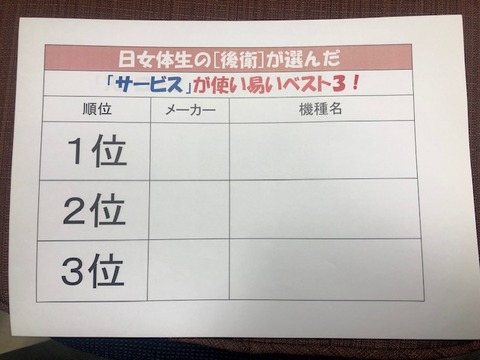 日女体生の[後衛]が選んだ
「サービス」が使い易いベスト3！
順位 メーカー 機種名
1位
2位
3位